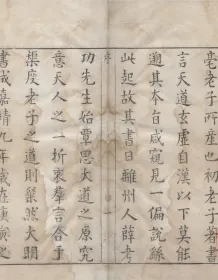 亳老子所產也初老子著書
言天道玄虛自漢以下莫能
遡其本自咸窺見一偏說緜
此起故其書日離州人薛考
序
一
功先生始覃思大道之原究
意天人之一折衷羣言合乎
榘度老子之道則粲然大明
書成嘉靖九年歲在